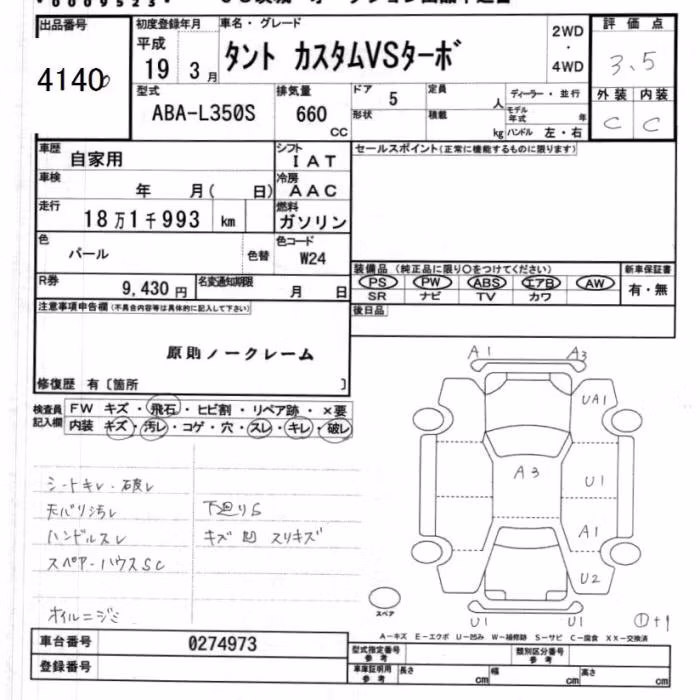 出品番号
4140
初度登録年月
平成
19 3月
車名・グレード
タント カスタムVSターボ
2WD
・
4WD
評価点
3.5
型式
ABA-L350S
排気量
660
CC
ドア 5
定員 人
形状
積載 kg
ディーラー・並行
モデル年式 年
ハンドル 左・右
外装 内装
C C
車歴 自家用
シフト IAT
車検 年 月( 日)
冷房 AAC
走行 18万1千993 km
燃料 ガソリン
色 パール 色替
色コード W24
R券 9,430円
名変通知期限 月 日
セールスポイント(正常に機能するものに限ります)
装備品 (純正品に限り〇をつけてください)
PS PW ABS エアB AW
SR ナビ TV カワ
新車保証書
有・無
後日品
注意事項申告欄(不具合内容等は具体的に記入して下さい)
原則ノークレーム
修復歴 有〔箇所 〕
検査員記入欄
FW キズ・飛石・ヒビ割・リペア跡・×要
内装 キズ・汚レ・コゲ・穴・スレ・キレ・破レ
シートキレ・破レ
天バリ汚レ
ハンドルスレ
スペアーハウスSC
オイルニジミ
下廻りS
キズ 凹 スリキズ
A1 A3
UA1
A3
U1
A1
U2
U1 U1
スペア
①+1
A−キズ E−エクボ U−凹み W−補修跡 S−サビ C−腐食 XX−交換済
車台番号 0274973
登録番号
型式指定番号
参考
類別区分番号
参考
車庫証明用
参考
長さ cm
幅 cm
高さ cm